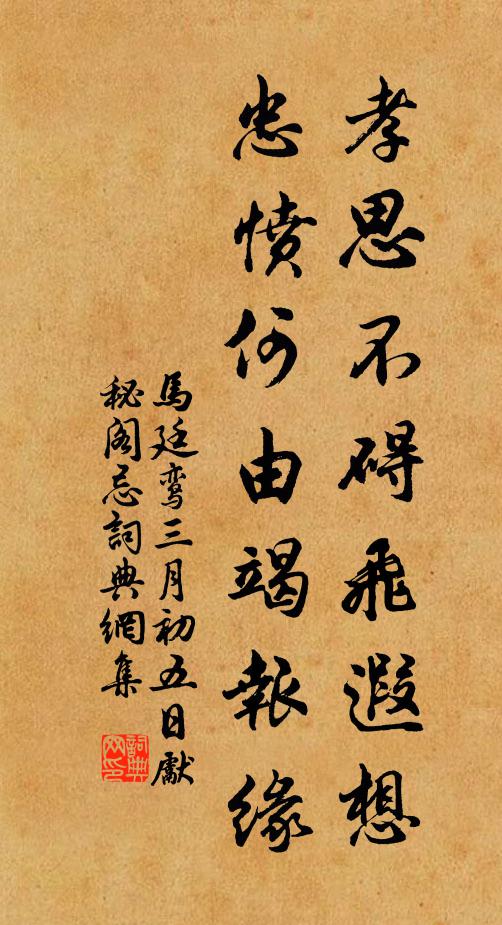 孝思不碍飛遐想
忠憤何由竭報緣
馬廷鸾三月初五日獻
秘阁忌詞典網集
詞典网印